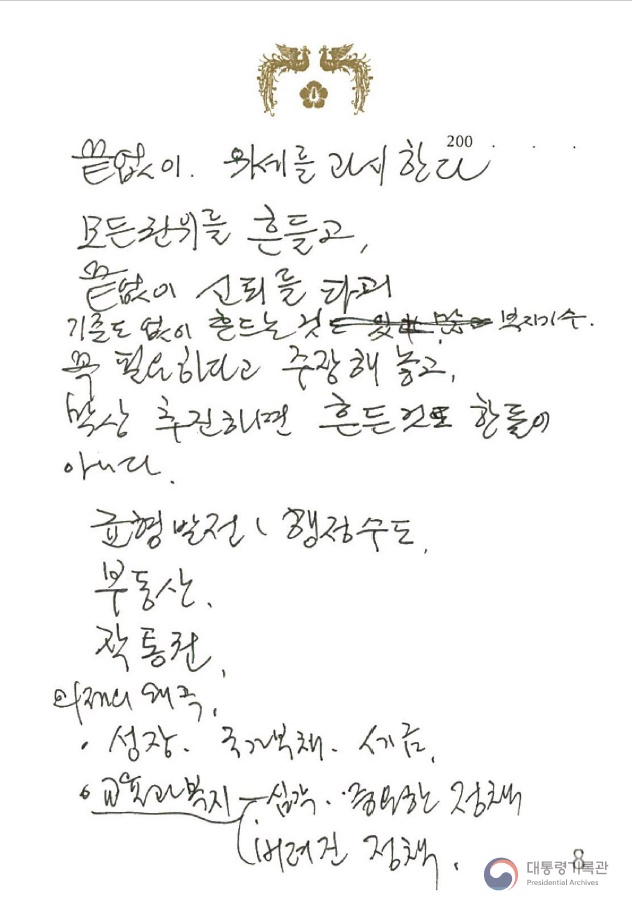 200 . . .
끝없이. 위세를 과시한다
모든 권위를 흔들고,
끝없이 신뢰를 타고
기준도 없이 흔드는 것도 있다. 많 복지기수.
꼭 필요하다고 주장해 놓고,
막상 추진하면 흔든 것도 한둘이
아니다.
균형발전, 행정수도,
부동산,
작통권,
의제의 왜곡,
· 성장. 국가부채. 세금,
· 교육과 복지 - 심각. 중요한 정책
버려진 정책.
8
대통령기록관
Presidential Archives